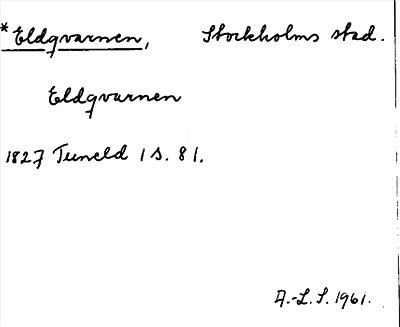 *Eldqvarnen, Stockholms stad.
Eldqvarnen
1827 Tuneld 1 s. 81.
A.-L. S. 1961.